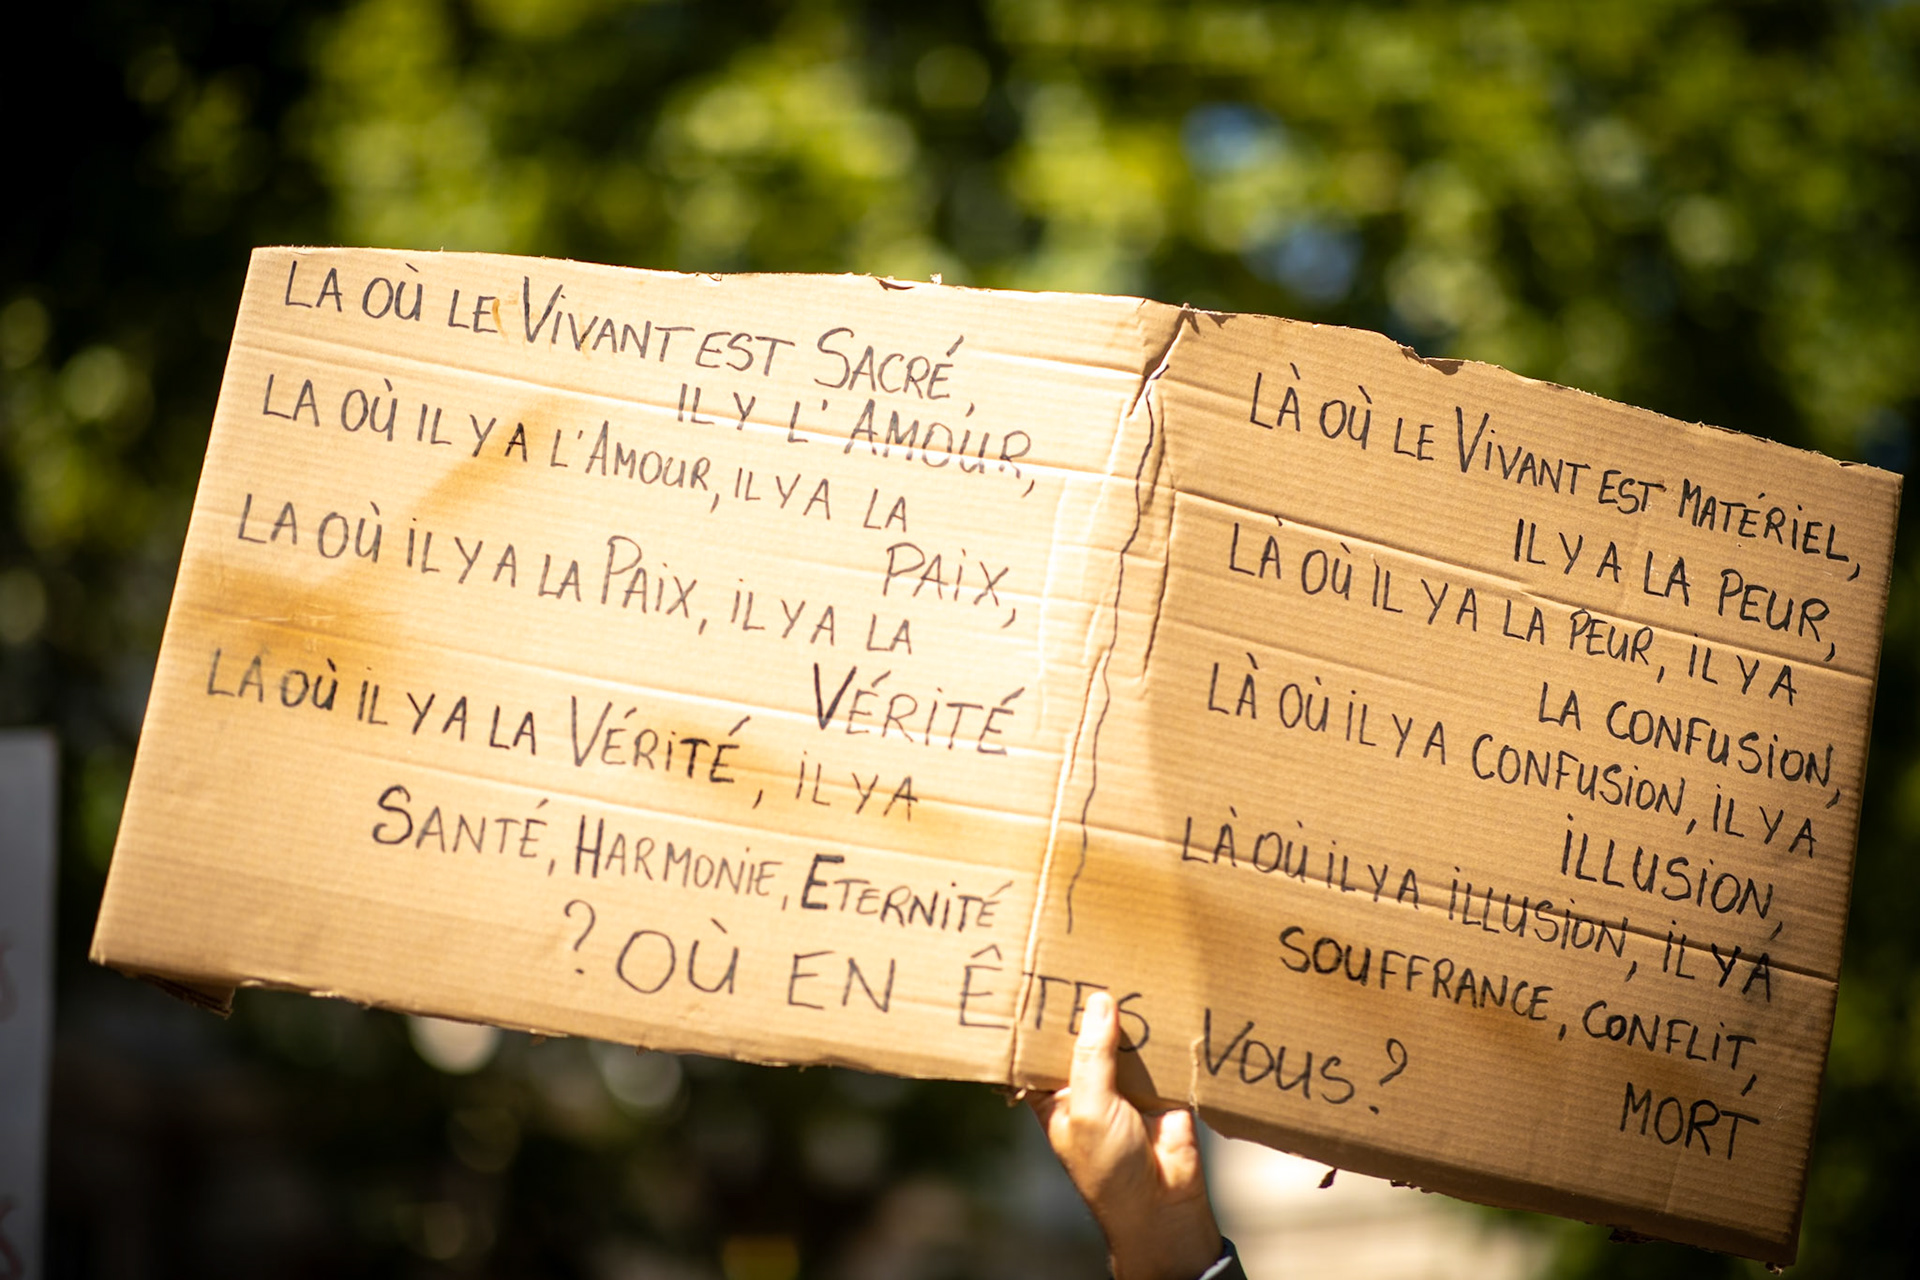 LA OÙ LE VIVANT EST SACRÉ,
IL Y L'AMOUR,
LA OÙ IL Y A L'AMOUR, IL Y A LA
PAIX,
LA OÙ IL Y A LA PAIX, IL Y A LA
VÉRITÉ
LA OÙ IL Y A LA VÉRITÉ, IL Y A
SANTÉ, HARMONIE, ETERNITÉ
LÀ OÙ LE VIVANT EST MATÉRIEL,
IL Y A LA PEUR,
LÀ OÙ IL Y A LA PEUR, IL Y A
LA CONFUSION,
LÀ OÙ IL Y A CONFUSION, IL Y A
ILLUSION,
LÀ OÙ IL Y A ILLUSION, IL Y A
SOUFFRANCE, CONFLIT,
MORT
? OÙ EN ÊTES VOUS ?